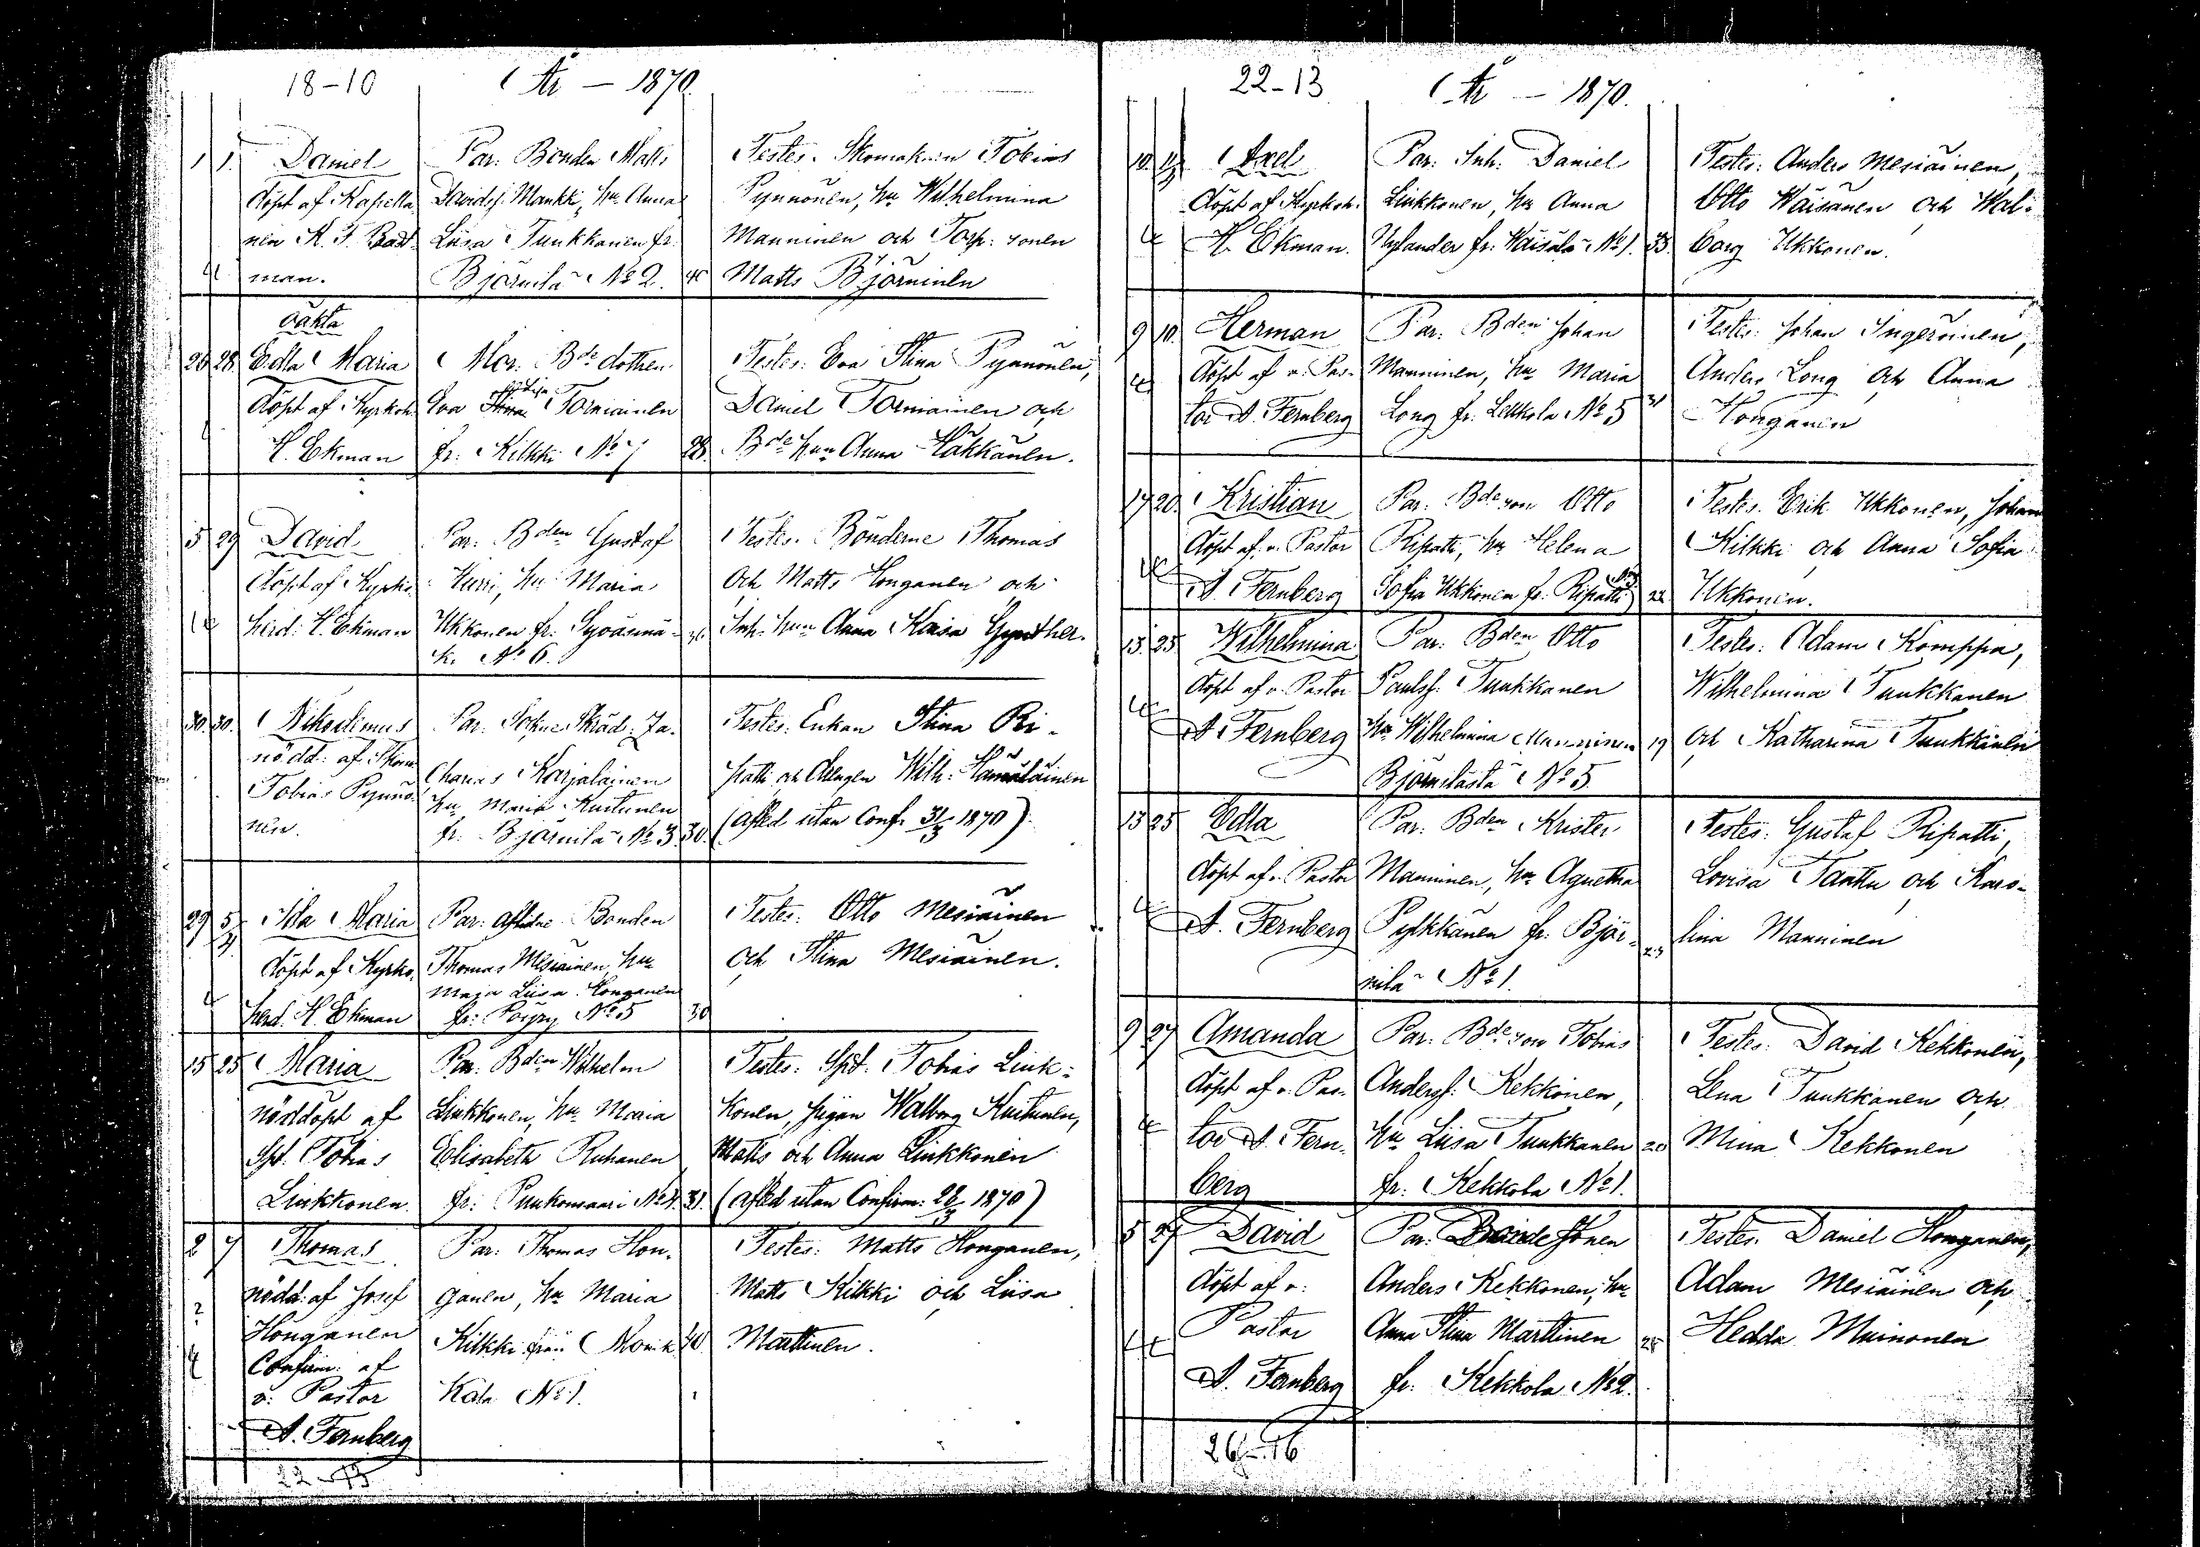 18-10
År - 1870.
1 1. Daniel
döpt af Kapella
nen K. F. Bad
man.
Par. Bonden Matts
Davidss. Mankki, hu Anna
Liisa Tunkkanen fr.
Björnilä No 2.
Testes. Skomakaren Tobias
Pynnönen, hu Wilhelmina
Manninen och Torp. sonen
Matts Björninen
oäkta
26 28. Edla Maria
döpt af Kyrkoh.
H. Ekman
Mor. Bde dottren
Eva Torniainen
fr. Kilkki No 7
28.
Testes. Eva Stina Pynnönen,
Daniel Torniainen och
Bde hun Anna Häkkänen.
5 29 David
döpt af Kyrko
herd. H. Ekman
Par. Bden Gustaf
Hurri, hu Maria
Ukkonen fr. Syväsmä
k. No 6.
Testes. Bönderne Thomas
och Matts Honganen och
Inh. hun Anna Kaisa Gynther.
30 30. Nikodemus
nödd. af Skom
Tobias Pynnö
nen.
Par. Sokne Skräd. Za-
charias Karjalainen
hu Maria Kuitunen
fr. Björnilä No 3
30.
Testes. Enkan Stina Ri-
patti och Drengen Wilh. Hämäläinen
(Afled utan Conf. 31/3 1870)
29 5/4 Ida Maria
döpt af Kyrko
herd. H. Ekman
Par. Afledne Bonden
Thomas Mesiäinen, hu
Maja Liisa Honganen
fr. Pöyry No 5
30
Testes: Otto Mesiäinen
och Stina Mesiäinen.
15 25 Maria
nöddöpt af
Spt. Tobias
Linkkonen.
Par. Bden Wilhelm
Linkkonen, hu Maria
Elisabeth Ruhanen
fr. Punkonsaari No 4.
31.
Testes: Spt. Tobias Link-
konen, pigan Walborg Kuitunen,
Matts och Anna Linkkonen
(Afled utan Confirm. 28/3 1870)
2 7 Thomas
nödd. af Josef
Honganen
Confirm. af
v. Pastor
A. Fernberg
Par. Thomas Hon-
ganen, hu Maria
Kilkki från Monik
kala No 1.
40
Testes: Matts Honganen,
Matts Kilkki och Liisa
Marttinen.
22-13
22-13
År - 1870.
10. 17 Axel
döpt af Kyrkoh.
H. Ekman.
Par. Inh. Daniel
Linkkonen, hu Anna
Nylander fr. Wäisälä No 1.
33.
Testes: Anders Mesiäinen,
Otto Wäisänen och Wal-
borg Ukkonen.
9 10. Herman
döpt af v. Pas-
tor A. Fernberg
Par. Bden Johan
Manninen, hu Maria
Long fr. Lekkola No 5
31
Testes: Johan Ingeröinen,
Anders Long och Anna
Honganen
17 20. Kristian
döpt af v. Pastor
A. Fernberg
Par. Bde son Otto
Ripatti, hu Helena
Sofia Ukkonen fr. Ripatti
22
Testes. Erik Ukkonen, Johan
Kilkki och Anna Sofia
Ukkonen.
13 25 Wilhelmina
döpt af v. Pastor
A. Fernberg
Par. Bden Otto
Paulss. Tunkkanen
hu Wilhelmina Manninen
Björnilästä No 5.
19
Testes. Adam Komppa,
Wilhelmina Tunkkanen
och Katharina Tunkkanen
13 25 Edla
döpt af v. Pastor
A. Fernberg
Par. Bden Krister
Manninen, hu Agnetha
Pylkkänen fr. Björ-
nilä No 1.
Testes: Gustaf Ripatti,
Lovisa Tanttu och Karo-
lina Manninen
9 27 Amanda
döpt af v. Pas-
tor A. Fern-
berg
Par. Bde son Tobias
Anderss. Kekkonen,
hu Liisa Tunkkanen
fr. Kekkola No 1.
20
Testes. David Kekkonen,
Lena Tunkkanen och
Mina Kekkonen
5 27 David
döpt af v.
Pastor
A. Fernberg
Par. Bonde Sonen
Anders Kekkonen, hu
Anna Stina Marttinen
fr. Kekkola No 2.
28
Testes. Daniel Honganen,
Adam Mesiäinen och
Hedda Muinonen
26-16